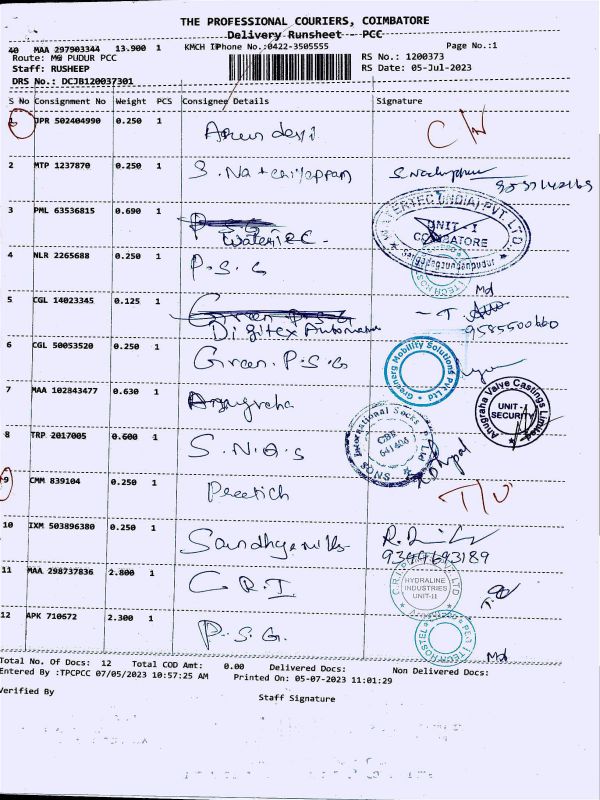 THE PROFESSIONAL COURIERS, COIMBATORE
Delivery Runsheet PCC
40 MAA 297903344 13.900 1 KMCH IP Phone No.:0422-3505555 Page No.:1
Route: MG PUDUR PCC RS No.: 1200373
Staff: RUSHEEP RS Date: 05-Jul-2023
DRS No.: DCJB120037301
S No Consignment No Weight PCS Consignee Details Signature
JPR 502404990 0.250 1
2 MTP 1237870 0.250 1
3 PML 63536815 0.690 1 Watertec
WATERTEC (INDIA) PVT. LTD. UNIT - I COIMBATORE
4 NLR 2265688 0.250 1 P.S.G
5 CGL 14023345 0.125 1 Digitex Automation
9585500660
6 CGL 50053520 0.250 1 Green. P.S.G
Greenerg Mobility Solutions Pvt Ltd
7 MAA 102843477 0.630 1 Anugraha
Anugraha Valve Castings Limited UNIT - SECURITY
8 TRP 2017005 0.600 1 S.N.Q.S
SNQS International Socks P Ltd CBE 641404
9 CMM 839104 0.250 1
10 IXM 503896380 0.250 1 Sandhya mills
9344693189
11 MAA 298737836 2.800 1 C.R.I
HYDRALINE INDUSTRIES UNIT-II
12 APK 710672 2.300 1 P.S.G.
Total No. Of Docs: 12 Total COD Amt: 0.00 Delivered Docs: Non Delivered Docs:
Entered By :TPCPCC 07/05/2023 10:57:25 AM Printed On: 05-07-2023 11:01:29
Verified By Staff Signature